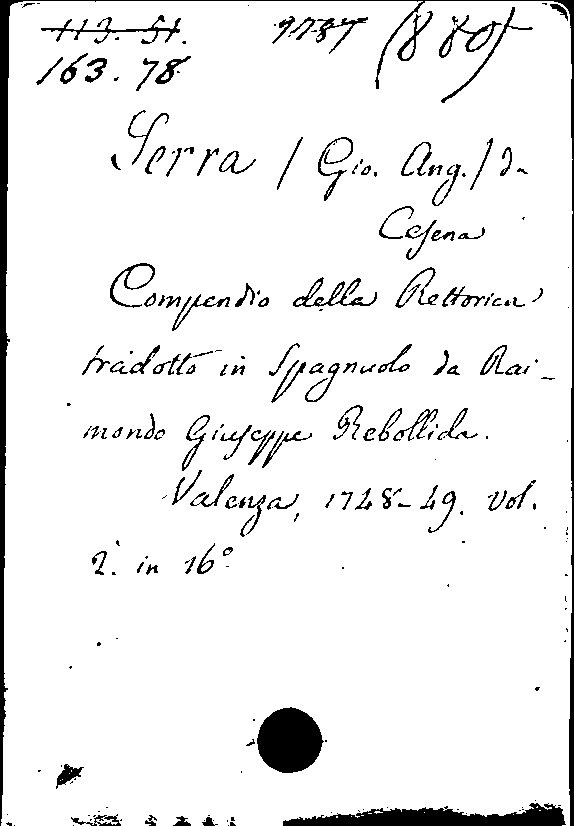 113. 51. 9787 (880)
163. 78
Serra / Gio. Ang. / da
Cesena
Compendio della Rettorica
tradotto in Spagnuolo da Rai-
mondo Giuseppe Rebollida.
Valenza, 1748-49. vol.
2. in 16°